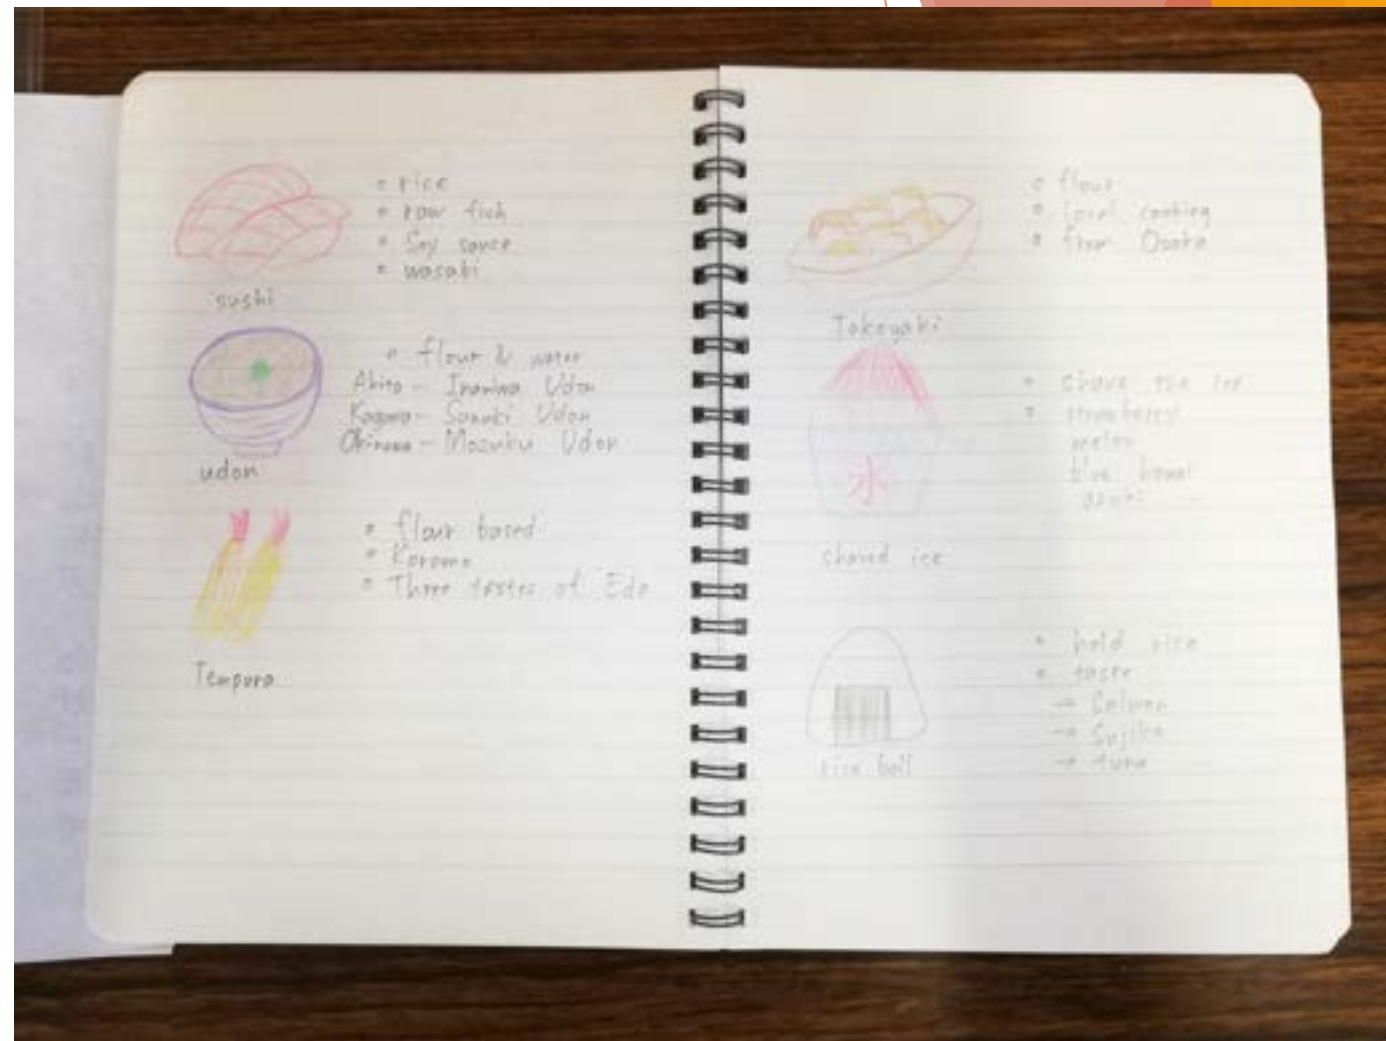 • rice
• raw fish
• Soy sauce
• wasabi
sushi
• flour & water
Akita - Inaniwa Udon
Kagawa - Sanuki Udon
Okinawa - Mozuku Udon
udon
• flour based
• Koromo
• Three tastes of Edo
Tempura
• flour
• local cooking
• from Osaka
Takoyaki
• shave the ice
• strawberry
melon
blue
氷
shaved ice
• hold rice
• taste
→ Salmon
→ Sujiko
→ tuna
rice ball